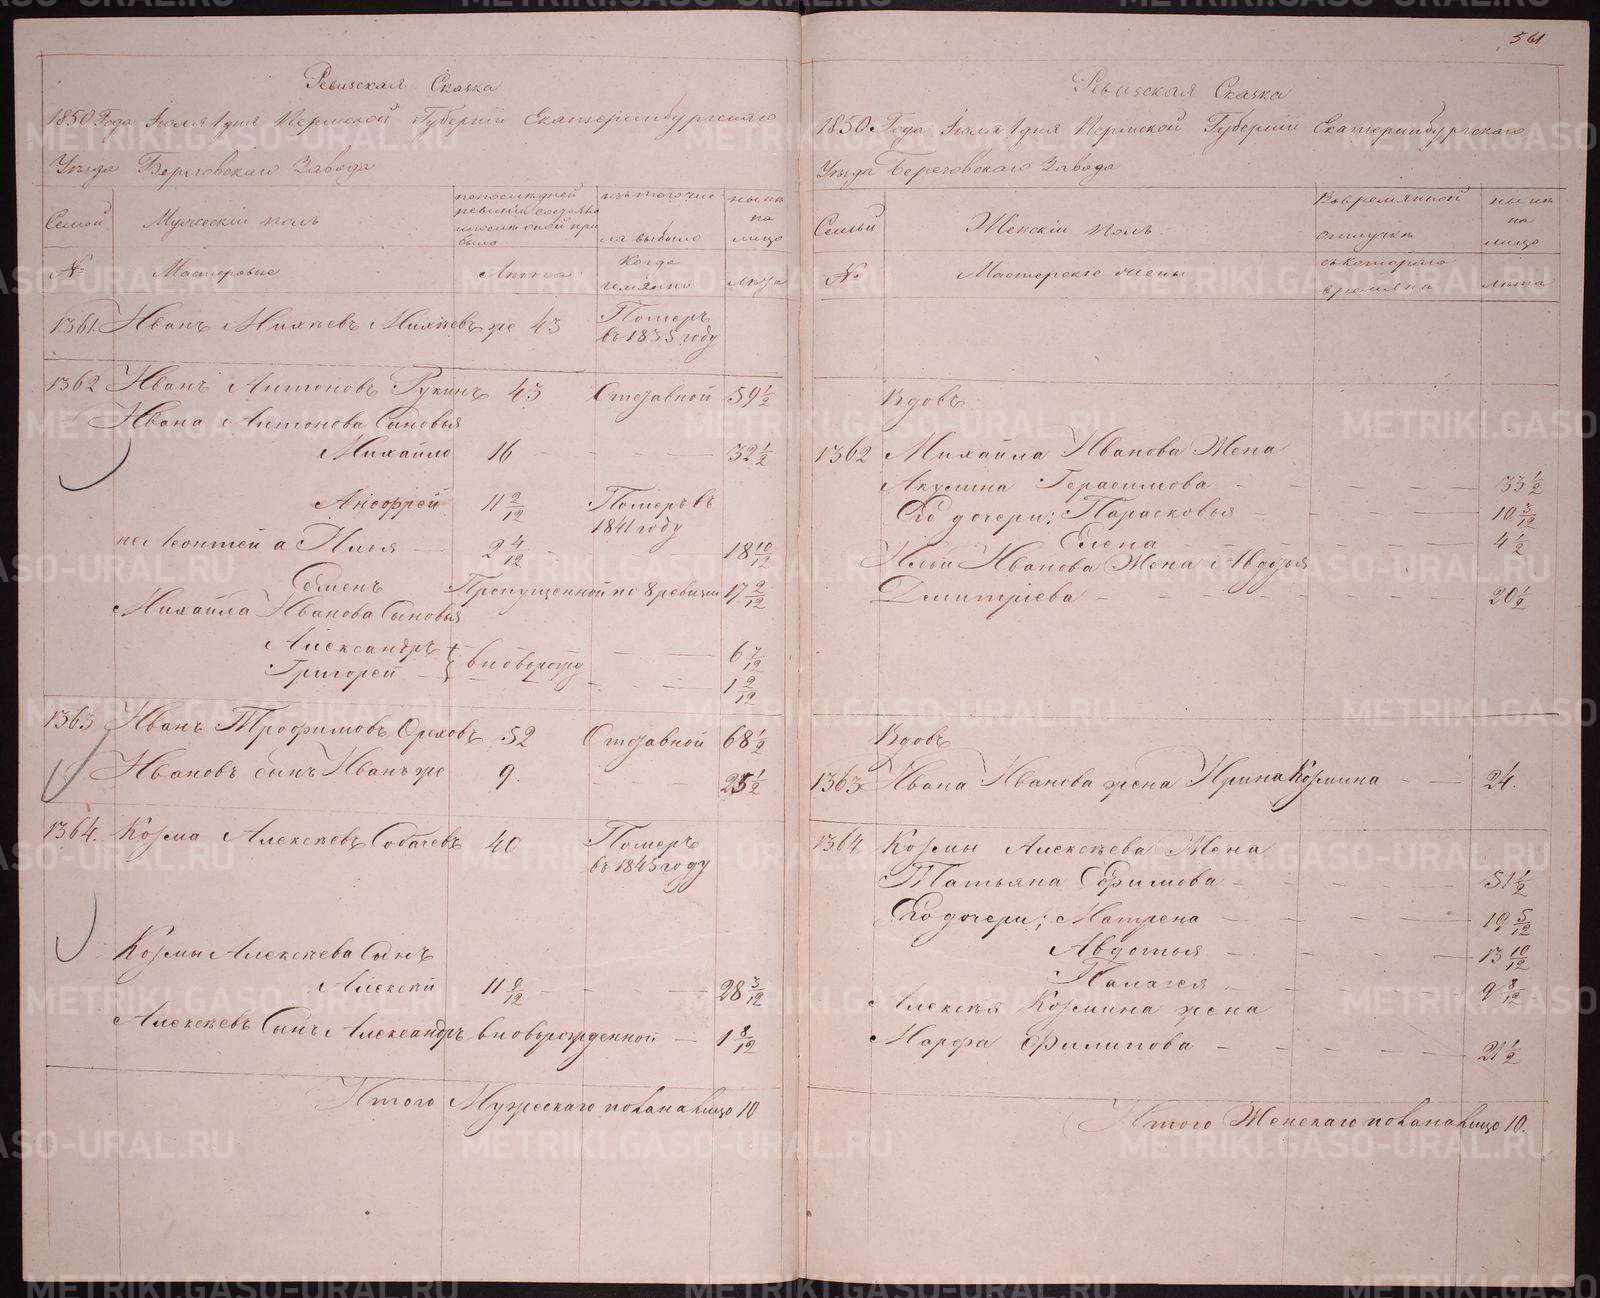 561
Ревизская Сказка
1850 Года Іюля 1 дня Пермской Губерніи Екатеринбургскаго
Уѣзда Березовскаго Завода
Семьи
Мужескій полъ
по последней ревизіи состояло и после оной прибыло
изъ того числа выбыло
ныне на лицо
№
Мастеровые
Лета
Когда именно
Лета
1361. Иванъ Михѣевъ Михѣевъ же 43 Померъ
въ 1835 году
1362 Иванъ Антоновъ Рукинъ 43 Отставной 59 1/2
Ивана Антонова Сыновья
Михайло 16 32 1/2
11 2/12 Померъ въ
1841 году
не Леонтей а Илья 2 4/12 18 10/12
Семенъ Пропущенной по 8 ревизіи 17 2/12
Михайла Иванова Сыновья
Александръ 6 7/12
Григорей вновьрожд 1 2/12
1363 Иванъ Трофимовъ Ореховъ 52 Отставной 68 1/2
Ивановъ сынъ Иванъ же 9. 25 1/2
1364. Козма Алексѣевъ Собачевъ 40 Померъ
въ 1845 году
Козмы Алексѣева Сынъ
Алексѣй 11 9/12 28 3/12
Алексѣевъ Сынъ Александръ вновьрожденной 1 8/12
Итого Мужескаго пола на лицо 10
Ревизская Сказка
1850 Года Іюля 1 дня Пермской Губерніи Екатеринбургскаго
Уѣзда Березовскаго Завода
Семьи
Женскій полъ
Во временной отлучкѣ
ныне на лицо
№
Мастерскіе жены
съ котораго времяна
лета
Вдовъ
1362 Михайла Иванова Жена
Акулина Герасимова 33 1/2
Его дочери: Парасковья 10 3/12
Елена 4 1/2
Ильи Иванова Жена Авдотья
Дмитріева 20 1/2
Вдовъ
1363 Ивана Иванова жена Ирина Козмина 24.
1364 Козмы Алексѣева Жена
Татьяна Ефимова 51 1/2
Его дочери; Матрена 19 5/12
Авдотья 13 10/12
Палагея 9 8/12
Алексѣя Козмина жена
Марфа Филипова 21 1/2
Итого Женскаго пола на лицо 10.
METRIKI.GASO-URAL.RU